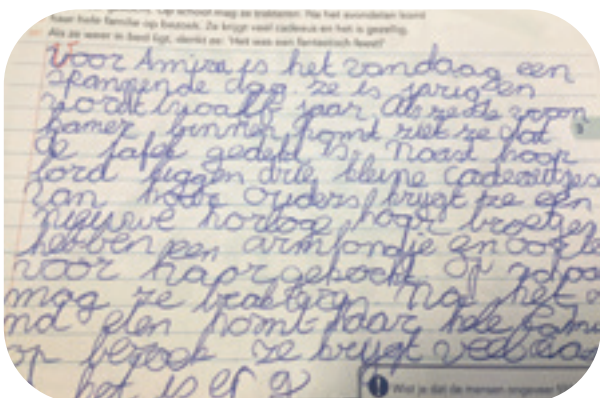 Op school mag ze trakteren. Na het avondeten komt
haar hele familie op bezoek. Ze krijgt veel cadeaus en het is gezellig.
Als ze weer in bed ligt, denkt ze: 'Het was een fantastisch feest!'
Voor Amira is het vandaag een
spannende dag. ze is jarig en
wordt twaalf jaar Als ze de woon
kamer binnen komt ziet ze dat
de tafel gedekt is. Naast hoop
bord liggen drie kleine cadeautjes
van hooe ouders krijgt ze een
nieuwe horloge hoor broertjes
hebben een armbandje en oorbe
voor haar gekocht Op schoo
mag ze trakteren Na het
nd eten komt haar hele fami
op bezoek ze krijgt veel
het is er g
Wist je dat de mensen ongeveer